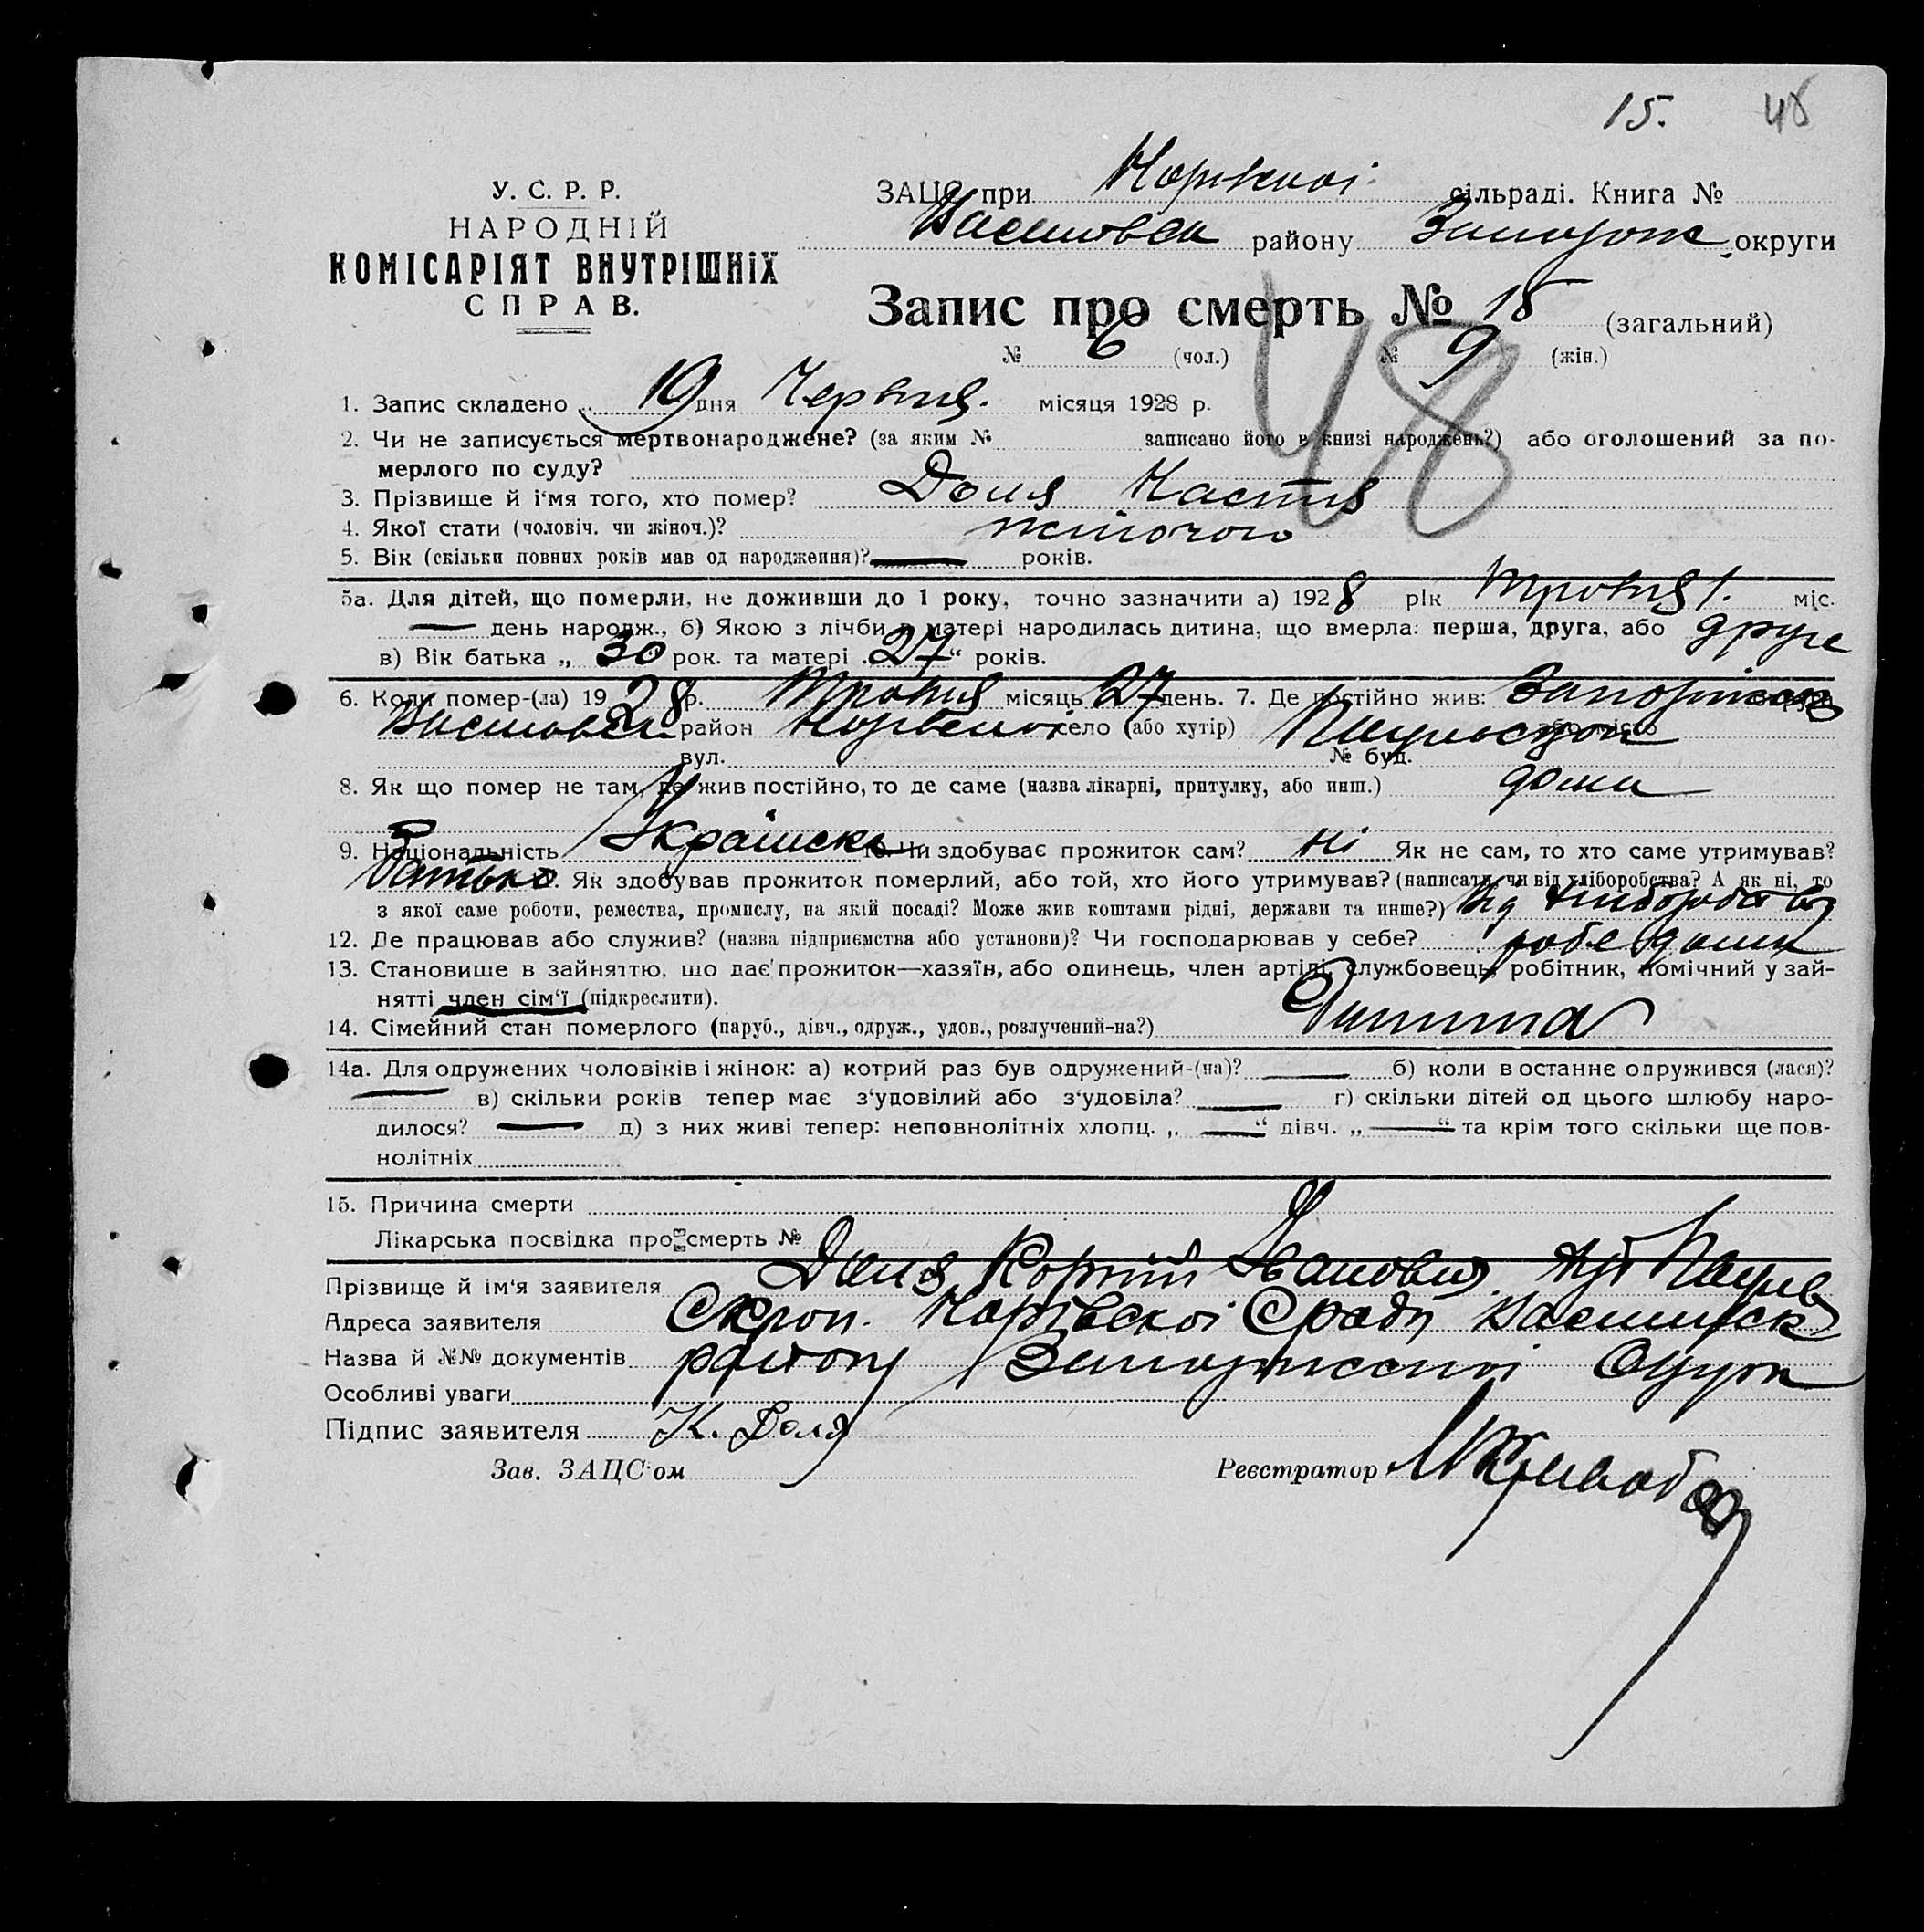 15. 48
У. С. Р. Р.
НАРОДНІЙ
КОМІСАРІЯТ ВНУТРІШНІХ
СПРАВ.
ЗАЦС при сільраді. Книга №
району округи
Запис про смерть № 15 (загальний)
№ 6 (чол.) № 9 (жін.)
48
1. Запис складено 19 дня Червня. місяця 1928 р.
2. Чи не записується мертвонароджене? (за яким № записано його в книзі народжень?) або оголошений за по-
мерлого по суду?
3. Прізвище й і'мя того, хто помер? Доля Настя
4. Якої стати (чоловіч. чи жіноч.)? жіночого
5. Вік (скільки повних років мав од народження)? — років.
5а. Для дітей, що померли, не доживши до 1 року, точно зазначити а) 1928 рік Тровня 1. міс.
— день народж., б) Якою з лічби в матері народилась дитина, що вмерла: перша, друга, або друге
в) Вік батька „ 30 рок. та матері „ 27 “ років.
6. Коли помер-(ла) 1928 р. Тровня місяць 27 день. 7. Де постійно жив: округа
район село (або хутір) або місто
вул. № буд.
8. Як що помер не там, де жив постійно, то де саме (назва лікарні, притулку, або инш.) дома
9. Національність Українска 10. Чи здобуває прожиток сам? ні Як не сам, то хто саме утримував?
Батько. Як здобував прожиток померлий, або той, хто його утримував? (написати, чи від хліборобства? А як ні, то
з якої саме роботи, ремества, промислу, на якій посаді? Може жив коштами рідні, держави та инше?) від хлиборобства
12. Де працював або служив? (назва підприємства або установи)? Чи господарював у себе? робе дома
13. Становище в зайняттю, що дає прожиток—хазяїн, або одинець, член артілі, службовець, робітник, помічний у зай-
нятті член сім'ї (підкреслити).
14. Сімейний стан померлого (паруб., дівч., одруж., удов., розлучений-на?) Дитина
14а. Для одружених чоловіків і жінок: а) котрий раз був одружений-(на)? — б) коли в останнє одружився (лася)?
— в) скільки років тепер має з'удовілий або з'удовіла? — г) скільки дітей од цього шлюбу наро-
дилося? — д) з них живі тепер: неповнолітніх хлопц. „ — “ дівч. „ — “ та крім того скільки ще пов-
нолітніх
15. Причина смерти
Лікарська посвідка про смерть №
Прізвище й ім'я заявителя Доля Корній Іванович
Адреса заявителя
Назва й №№ документів району Запоріжской Округи
Особливі уваги
Підпис заявителя К. Доля
Зав. ЗАЦС'ом Реєстратор